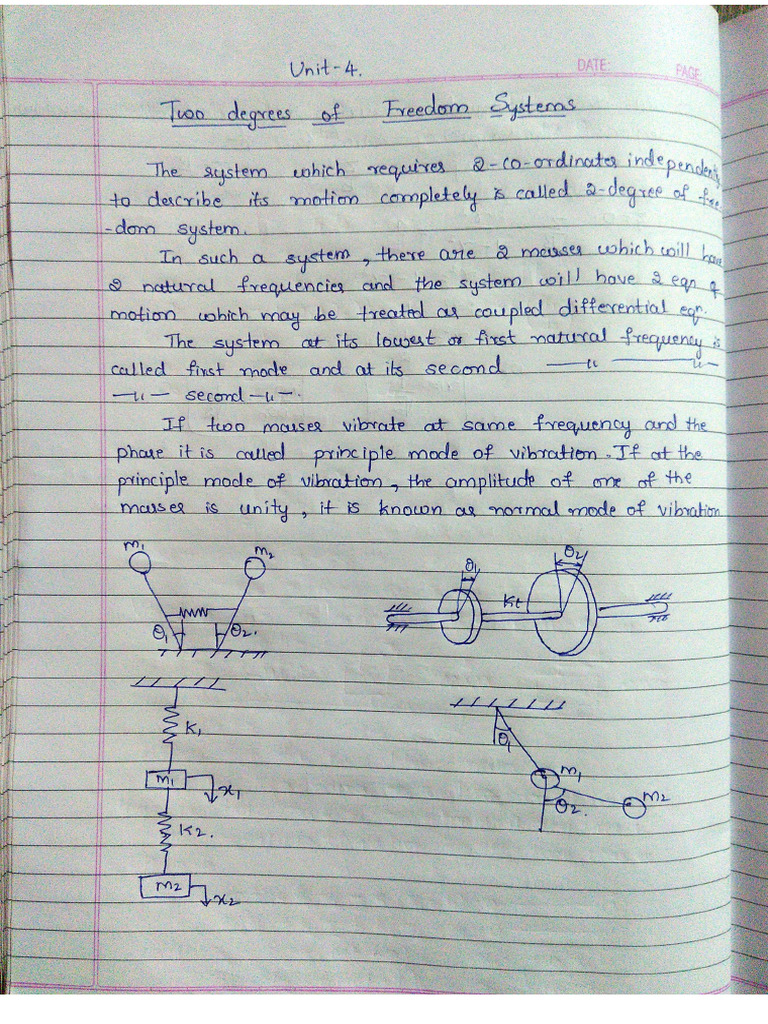 Unit-4.
DATE:
PAGE:
Two degrees of Freedom Systems
The system which requires 2-co-ordinates independently
to describe its motion completely is called 2-degree of free
-dom system.
In such a system, there are 2 masses which will have
2 natural frequencies and the system will have 2 eqn of
motion which may be treated as coupled differential eqn.
The system at its lowest or first natural frequency is
called first mode and at its second —— 〃 ———— 〃 —
— 〃 — second — 〃 —.
If two masses vibrate at same frequency and the
phase it is called principle mode of vibration. If at the
principle mode of vibration, the amplitude of one of the
masses is unity, it is known as normal mode of vibration
m1 m2
θ1 θ2.
θ1 Kt θ2
K1
m1 x1
K2.
m2 x2
θ1
m1 m2
θ2.